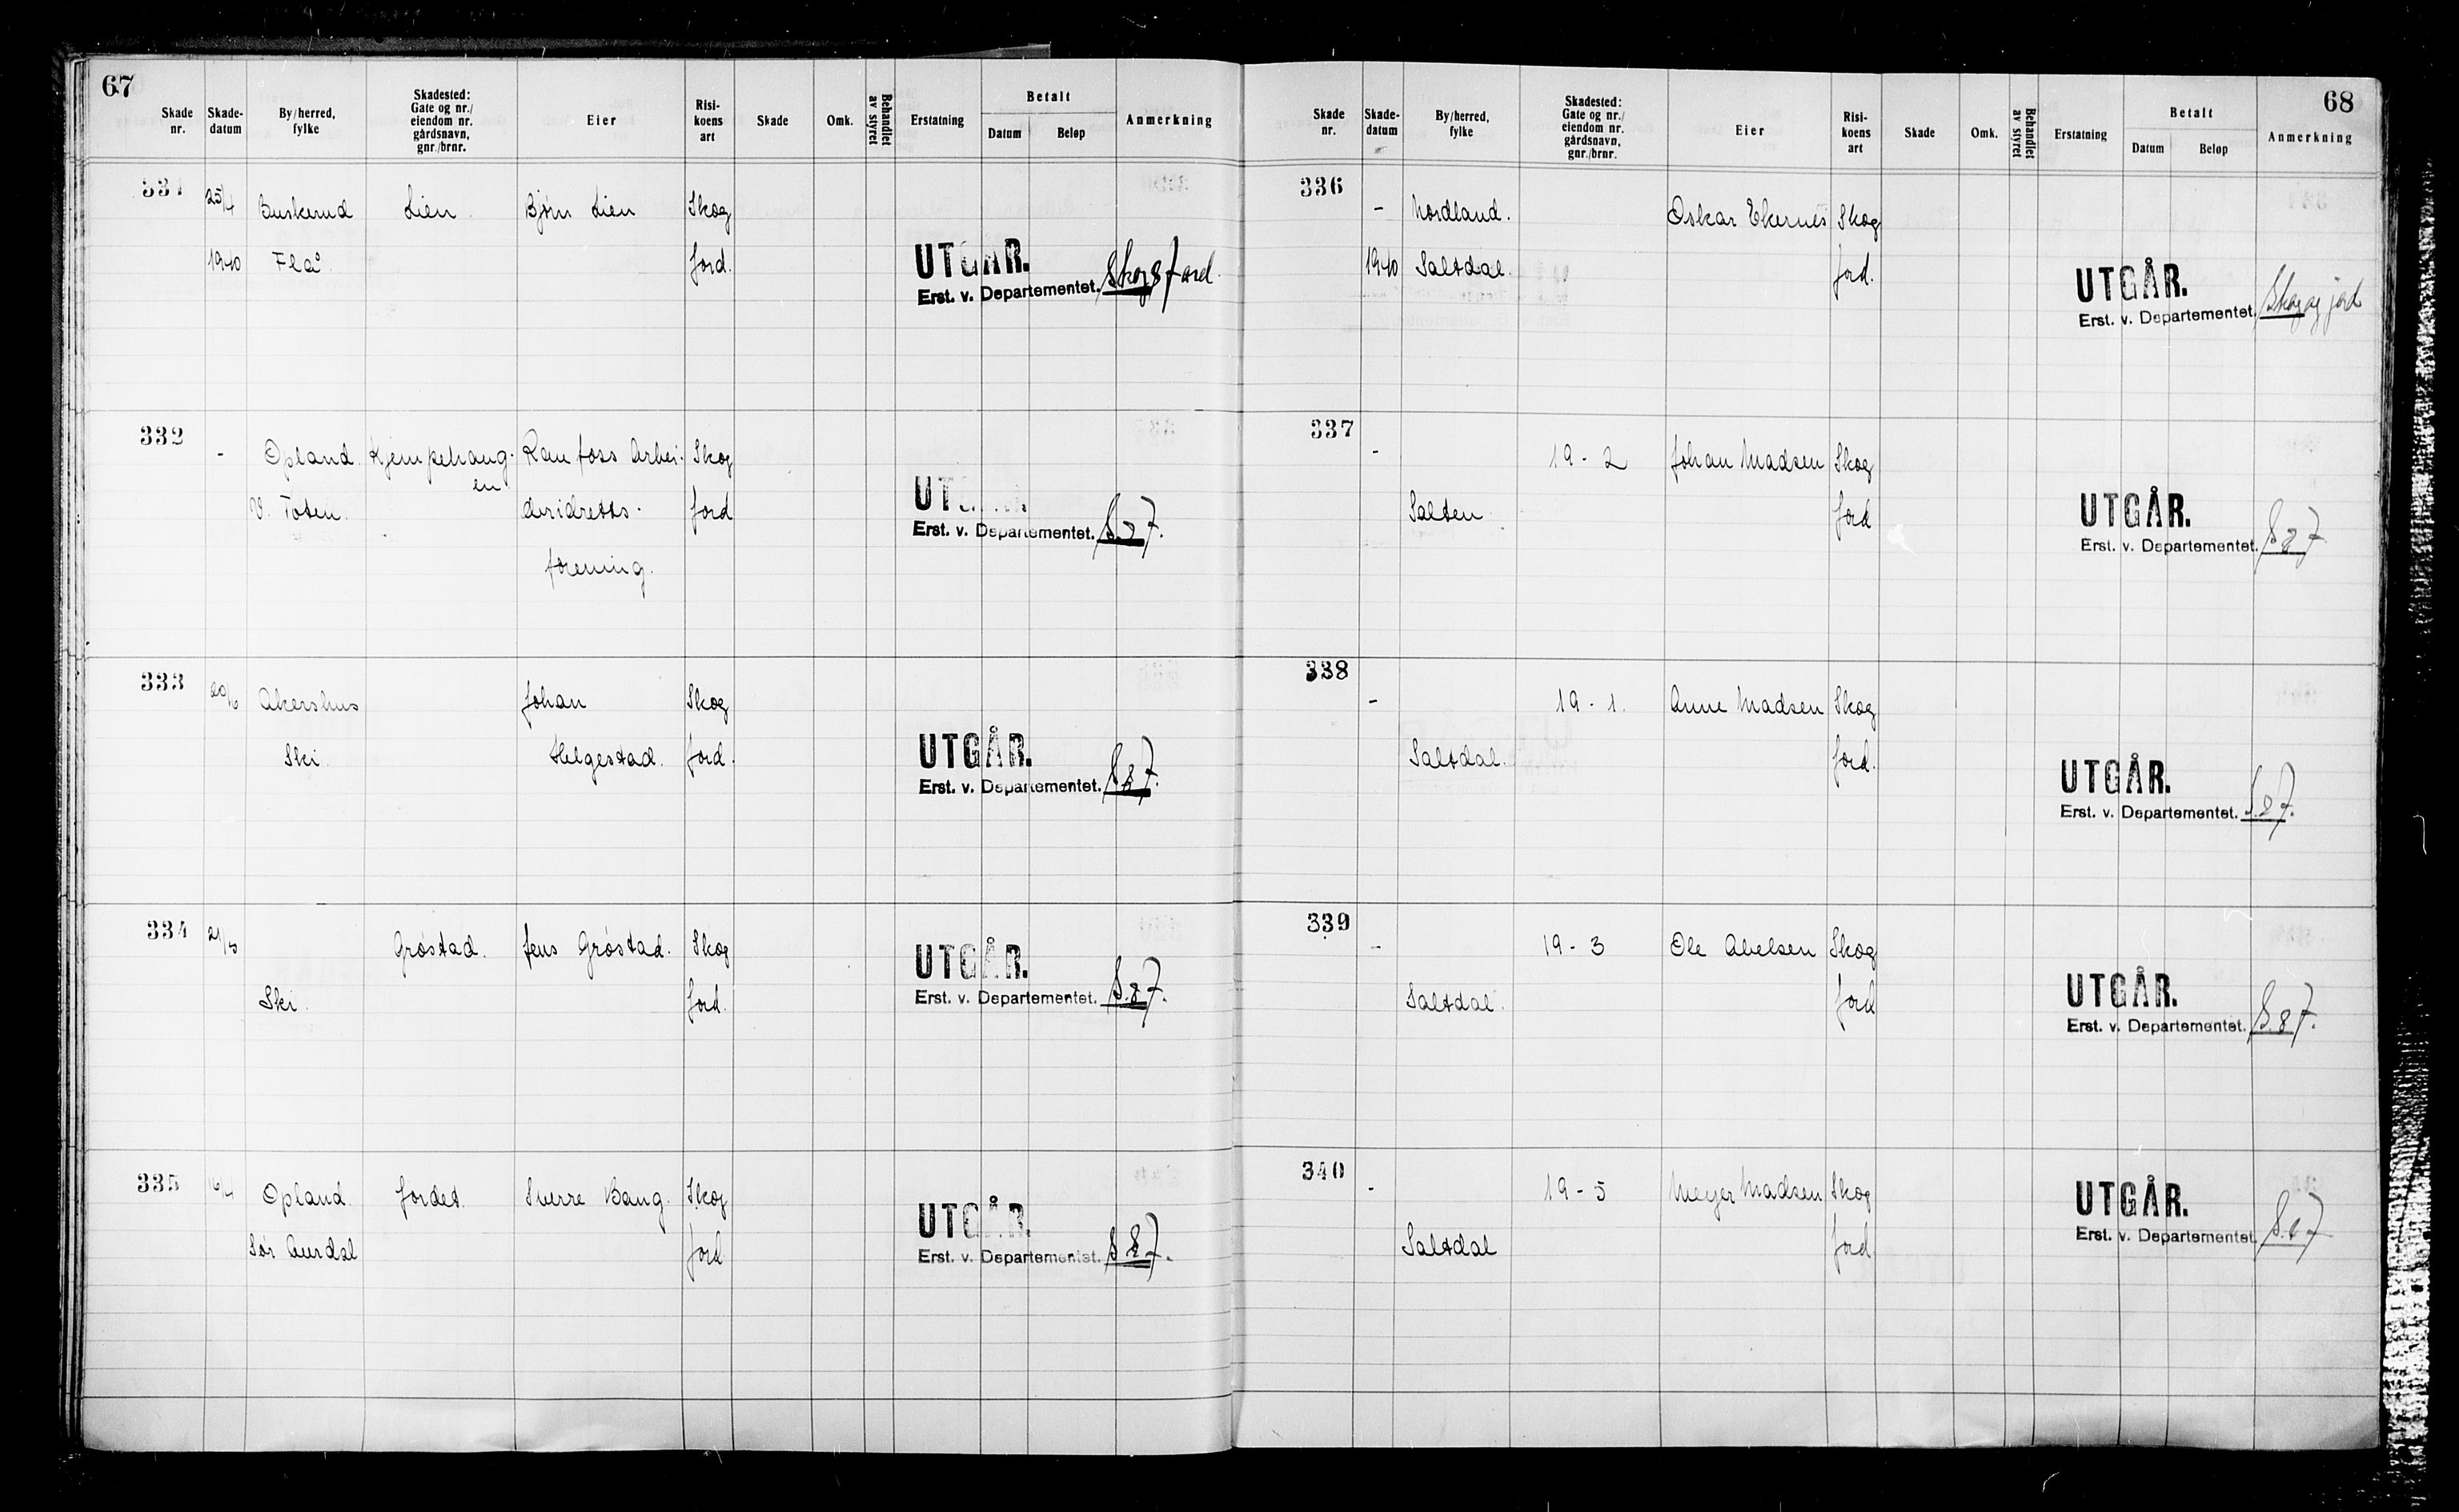 67
Skade nr. Skade-datum By/herred, fylke Skadested: Gate og nr./ eiendom nr. gårdsnavn, gnr./brnr. Eier Risi-koens art Skade Omk. Behandlet av styret Erstatning Betalt Datum Beløp Anmerkning
331 25/4 Buskerud Lien Bjørn Lien Skog
1940 Flå Jord.
UTGÅR.
Erst. v. Departementet. Skog & Jord.
332 - Opland Kjempehaug- Raufoss Arbei- Skog
en
V. Toten. deridretts- Jord
forening.
UTGÅR.
Erst. v. Departementet. S & J.
333 Akershus Johan Skog
Ski Helgestad. Jord.
UTGÅR.
Erst. v. Departementet. S & J.
334 Grøstad. Jens Grøstad. Skog
Ski. Jord.
UTGÅR.
Erst. v. Departementet. S & J.
335 16/4 Opland. Jordet. Sverre Bang. Skog
Sør Aurdal Jord
UTGÅR.
Erst. v. Departementet. S & J.
68
Skade nr. Skade-datum By/herred, fylke Skadested: Gate og nr./ eiendom nr. gårdsnavn, gnr./brnr. Eier Risi-koens art Skade Omk. Behandlet av styret Erstatning Betalt Datum Beløp Anmerkning
336 - Nordland. Oskar Ekernes Skog
1940 Saltdal. Jord.
UTGÅR.
Erst. v. Departementet. Skog og jord
337 - 19 - 2 Johan Madsen Skog
Salten Jord
UTGÅR.
Erst. v. Departementet. S & J
338 - 19 - 1. Anne Madsen Skog
Saltdal. Jord.
UTGÅR.
Erst. v. Departementet. S & J.
339 - 19 - 3 Ole Abelsen Skog
Saltdal. Jord
UTGÅR.
Erst. v. Departementet. S & J.
340 - 19 - 5 Meyer Madsen Skog
Saltdal Jord
UTGÅR.
Erst. v. Departementet. S & J